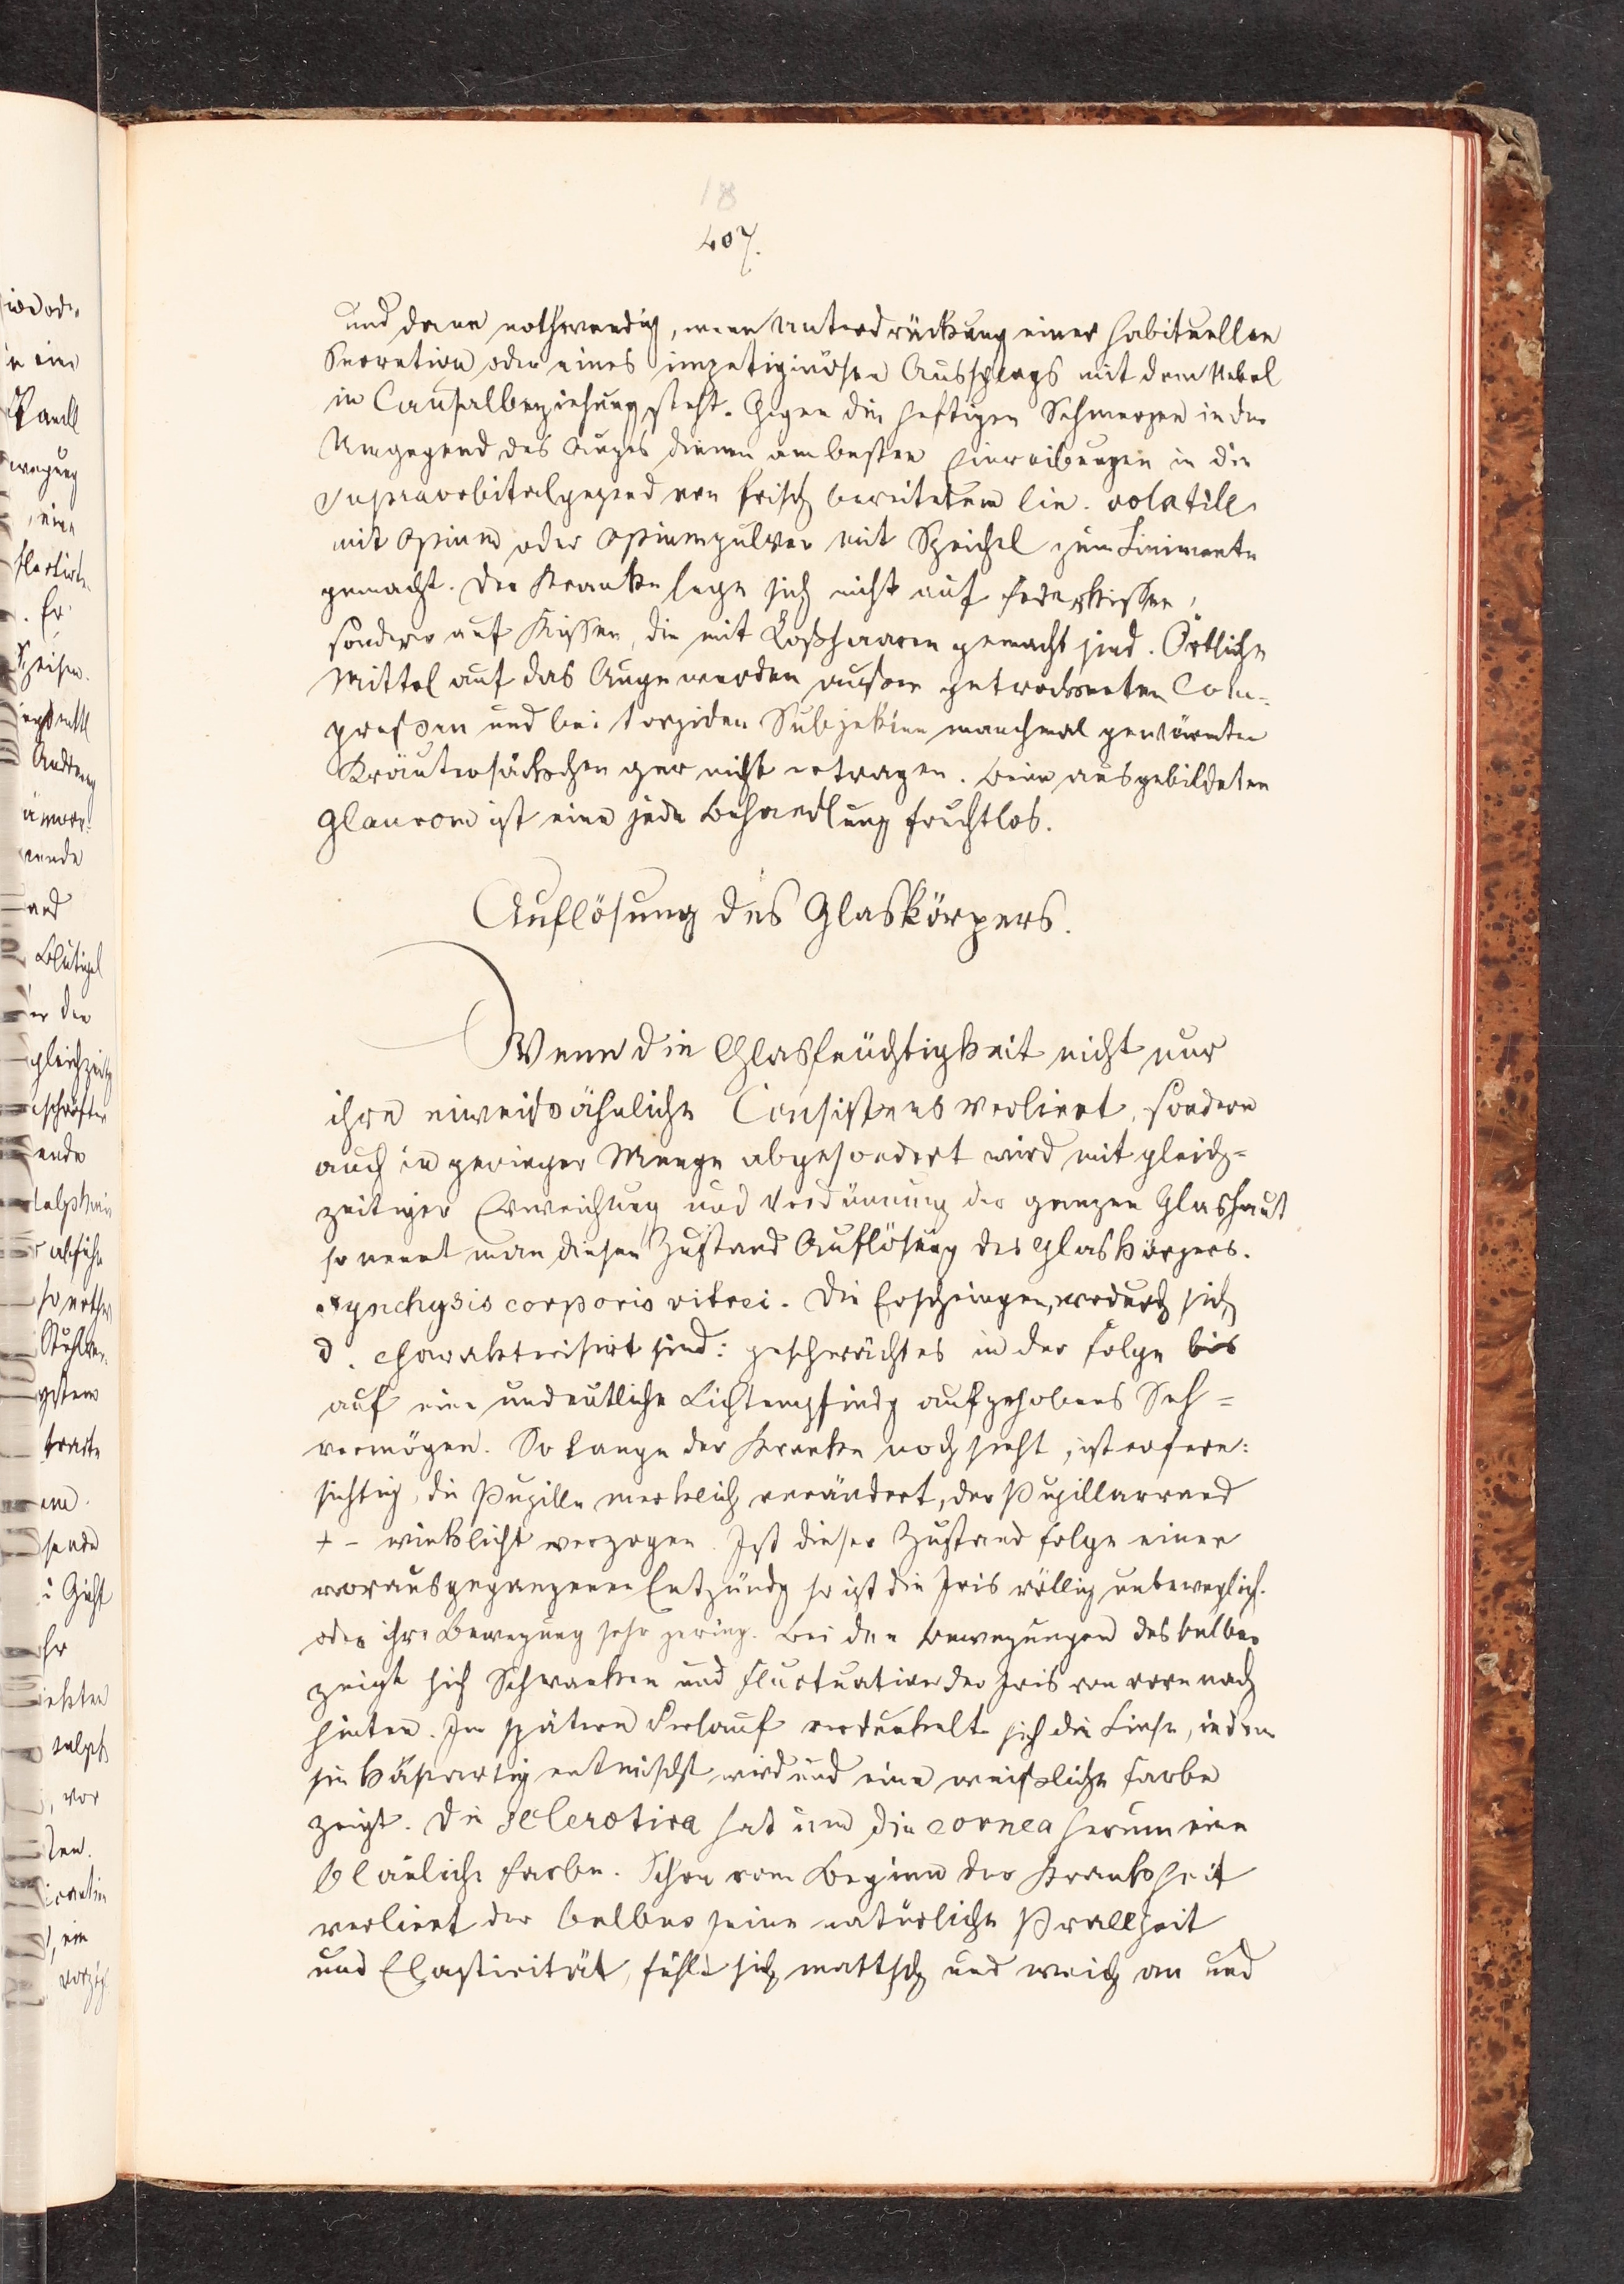 18
407.
und dann nothwendig, wenn Unterdrückung einer habituellen
Secretion oder eines impetiginösen Ausschlags mit dem Uebel
in Causalbeziehung steht. Gegen die heftigen Schmerzen in der
Umgegend des Auges dienen am besten Einreibungen in die
Supraorbitalgegend von frisch bereitetem lin. volatile
mit Opium oder Opiumpulver mit Speichel zum Linimente
gemacht. Der Kranke lege sich nicht auf Federkissen,
sondern auf Kissen, die mit Roßhaaren gemacht sind. Örtliche
Mittel auf das Auge werden außer getrockneten Com-
pressen und bei torpiden Subjekten manchmal gewärmten
Kräutersäckchen gar nicht ertragen. Beim ausgebildeten
Glaucom ist eine jede Behandlung fruchtlos.
Auflösung des Glaskörpers.
Wenn die Glasfeuchtigkeit nicht nur
ihre eiweisähnliche Consistens verliert, sondern
auch in geringer Menge abgesondert wird mit gleich-
zeitiger Erweichung und Verdünnung der ganzen Glashaut
so nennt man diesen Zustand Auflösung des Glaskörpers.
synchysis corporis vitrei. Die Erscheingen, wodurch sich
d. charakterisirt sind: geschwächtes in der Folge bis
auf eine undeutliche Lichtempfindg aufgehobenes Seh-
vermögen. So lange der Kranke noch sieht, ist er fern:
sichtig, die Pupille merklich verändert, der Pupillarrand
+ - winklicht verzogen. Ist dieser Zustand Folge einer
vorausgegangenen Entzündg so ist die Iris völlig unbeweglich.
oder ihre Bewegung sehr gering. Bei den Bewegungen des bulbus
zeigt sich Schwanken und Fluctuation der Iris von vorn nach
hinten. Im spätern Verlauf verdunkelt sich die Linse, indem
sie käseartig entmischt wird und eine weißliche Farbe
zeigt. Die Sclerotica hat um die cornea herum eine
bläuliche Farbe. Schon vom Beginn der Krankheit
verliert der bulbus seine natürliche Prallheit
und Elasticität, fühlt sich mattsch und weich an und